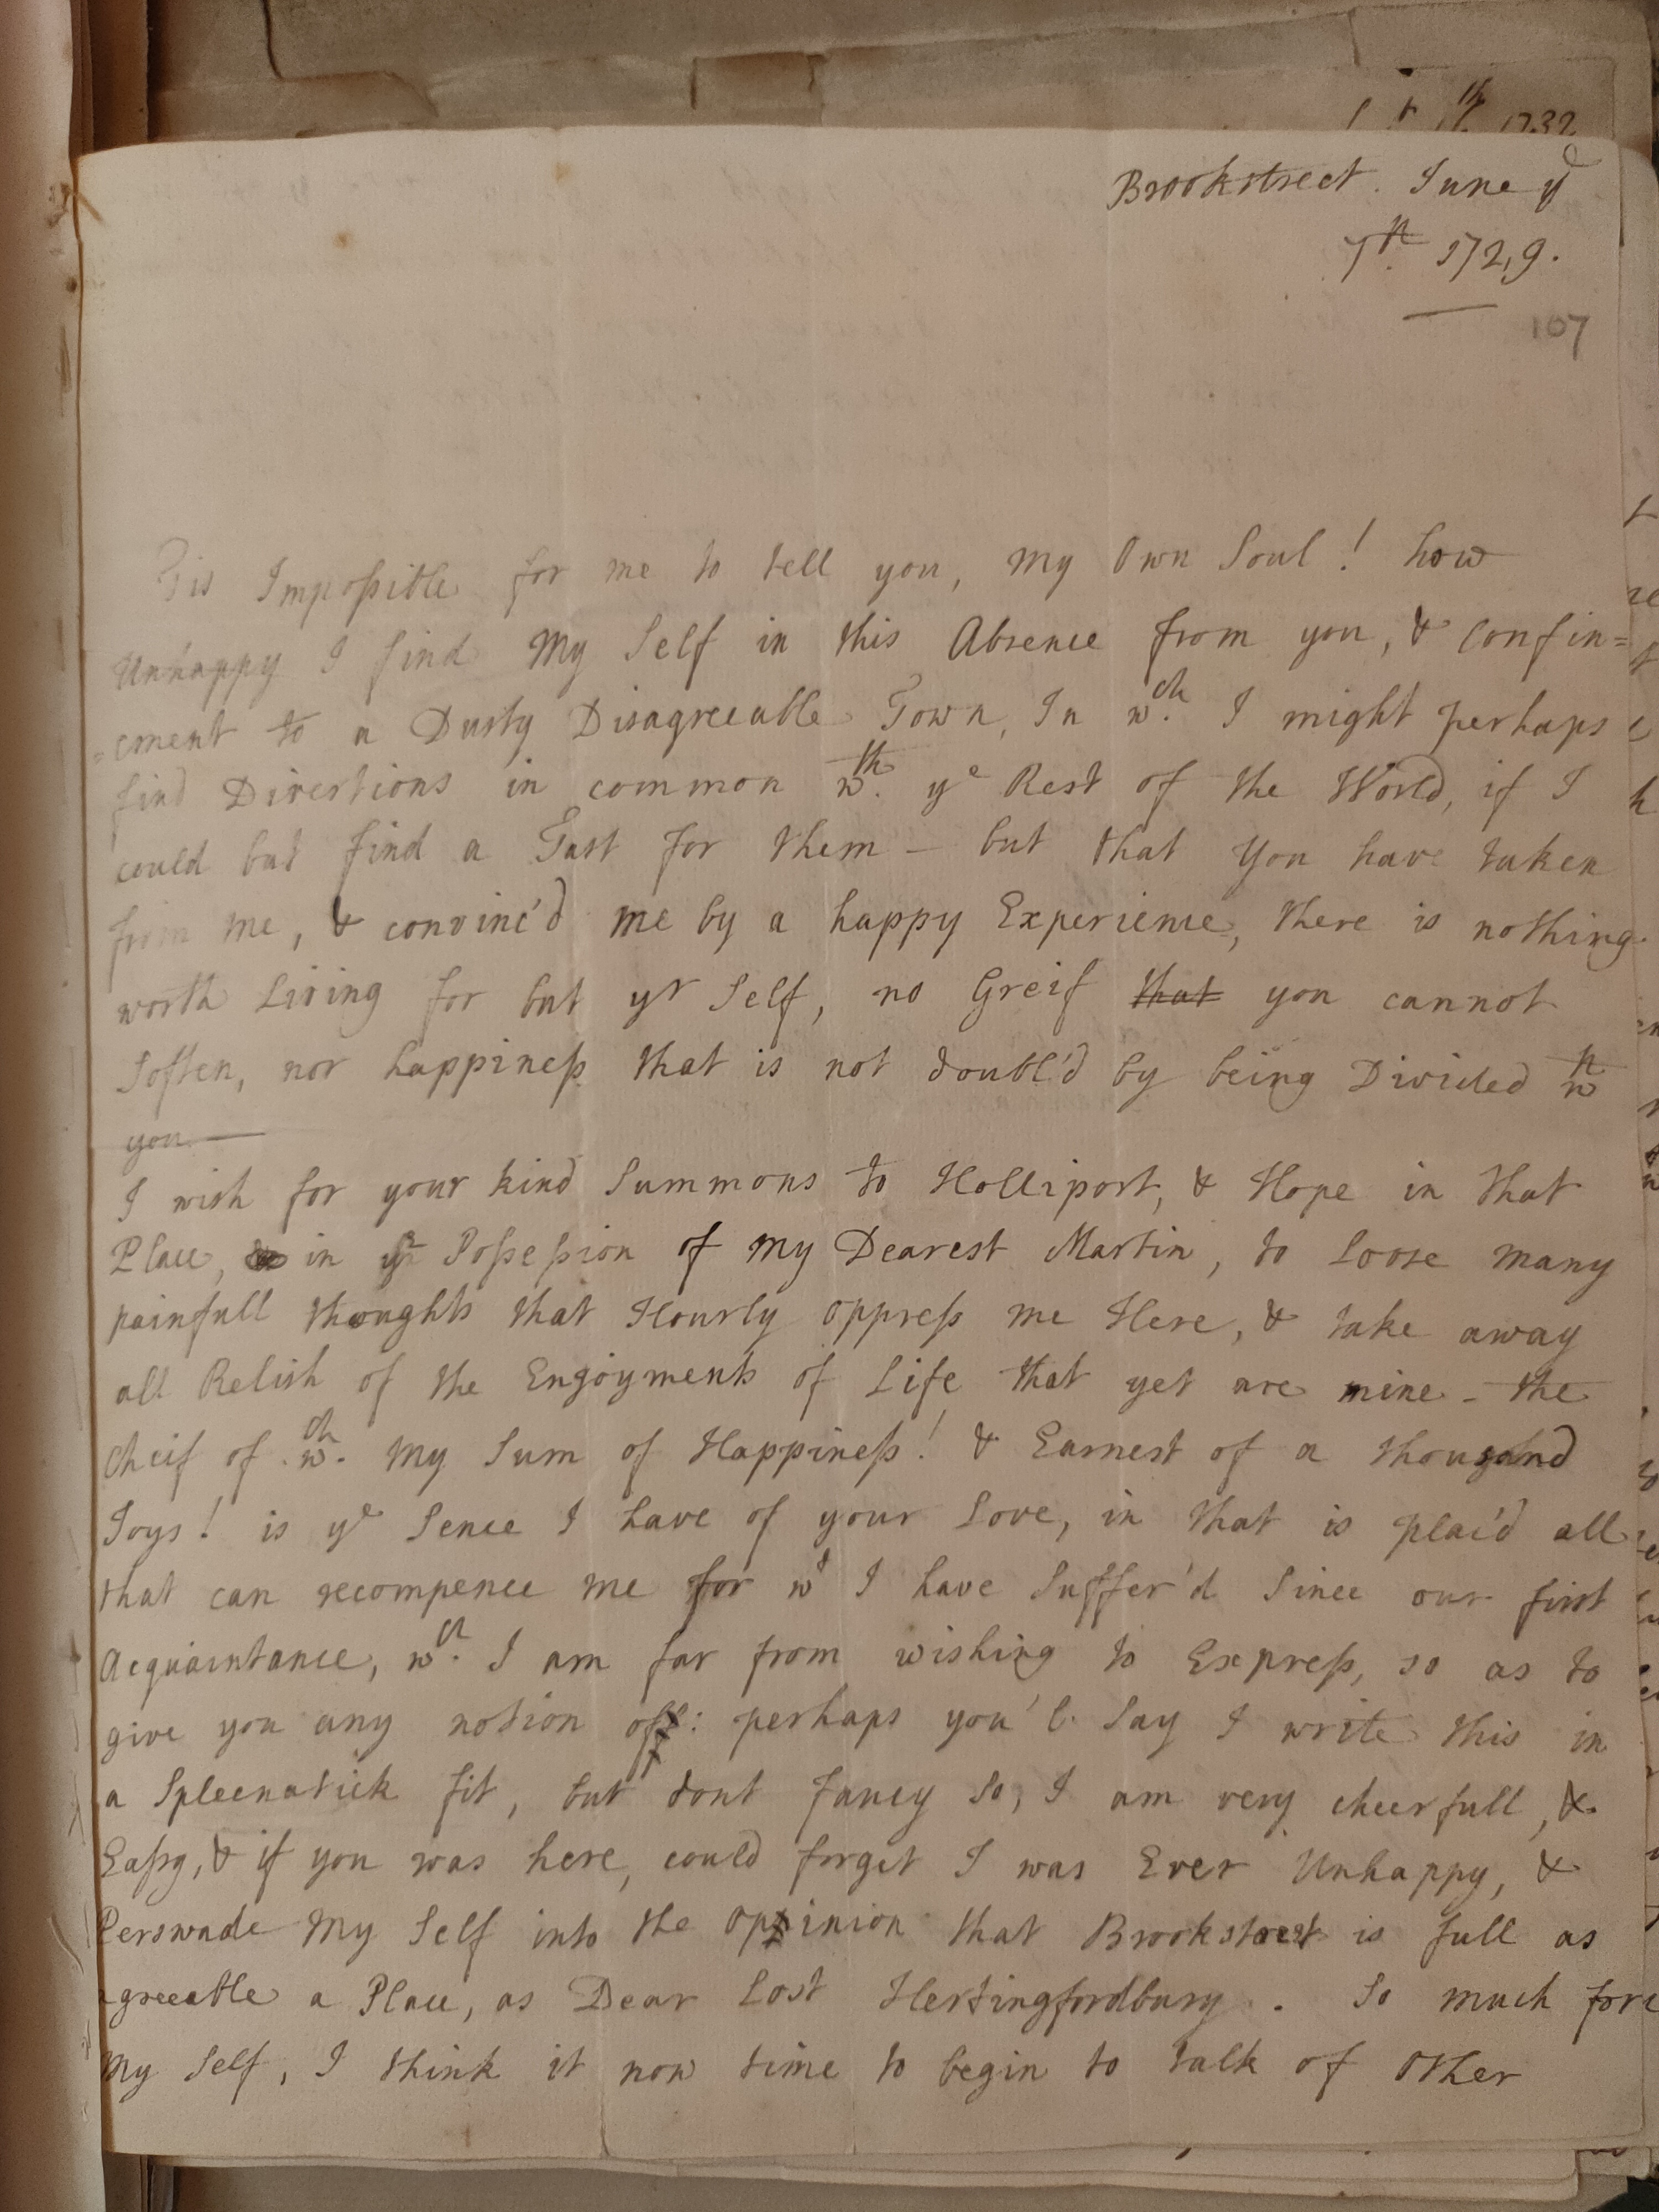 Brookstreet. June ye
7th. 1729.
107
Tis Impossible for me to tell you, my Own Soul! how
Unhappy I find My Self in this Absence from you, & confin=
=ement to a Dusty Disagreeable Town, In wch. I might perhaps
find Divertions in common wth. ye Rest of the World, if I
could but find a Tast for them - but that You have taken
from me, & convinc'd me by a happy Experience, there is nothing
worth Living for but yr Self, no Greif that you cannot
Soften, nor happiness that is not doubl'd by being Divided wth
you. —
I wish for your kind Summons to Holliport, & Hope in that
Place, in ye Possession of my Dearest Martin, to Loose many
painfull thoughts that Hourly oppress me Here, & take away
all Relish of the Engoyments of Life that yet are mine - the
cheif of wch. My Sum of Happiness! & Earnest of a thousand
Joys! is ye Sence I have of your Love, in that is plac'd all
that can recompence me for wt I have Suffer'd Since our first
Acquaintance, wch. I am far from wishing to Express, so as to
give you any notion off: perhaps you'l Say I write this in
a Spleenatick fit, but dont fancy so, I am very cheerfull, &
Eassy, & if you was here, could forget I was Ever Unhappy, &
Perswade My Self into the Oppinion that Brookstreet is full as
agreeable a Place, as Dear Lost Hertingfordbury. So much fore
My Self, I think it now time to begin to talk of Other